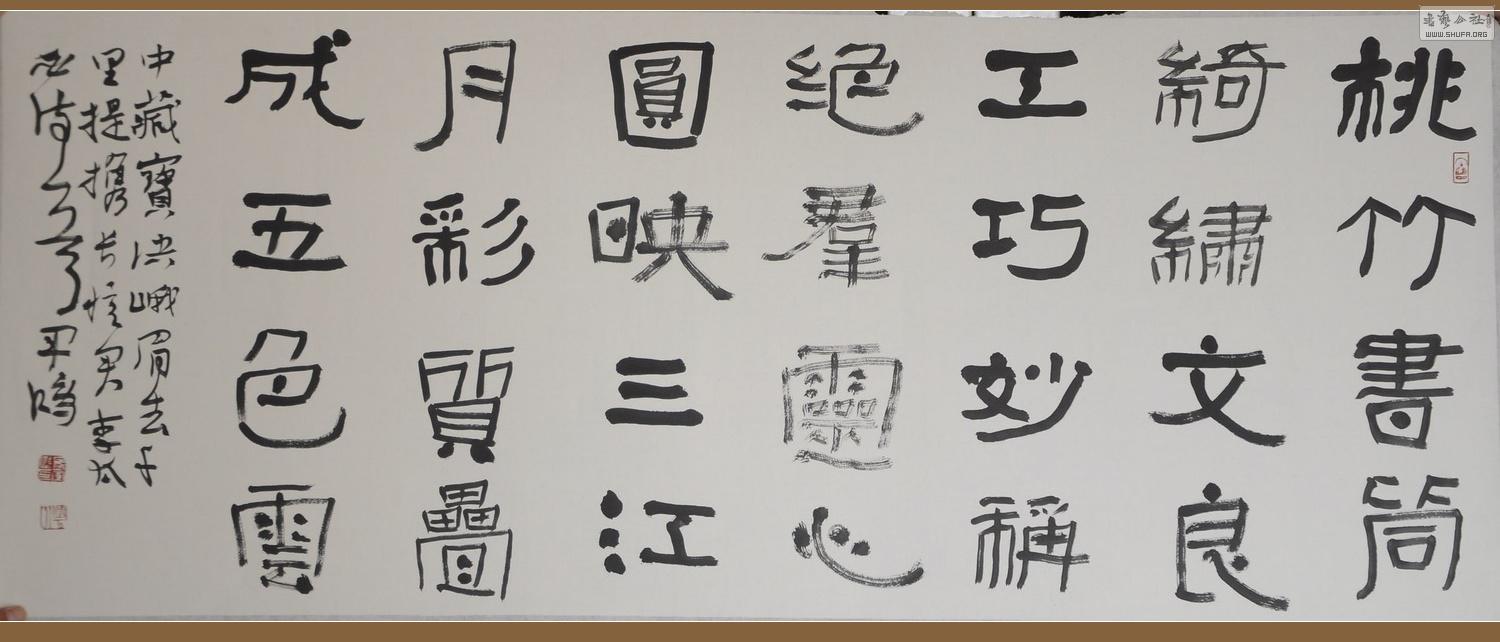 桃竹書筒
綺繡文良
工巧妙稱
絶羣靈心
圓映三江
月彩質疊
成五色雲
中藏寶訣峨眉去千
里提攜長憶君 李太
白詩
書藝公社
WWW.SHUFA.ORG